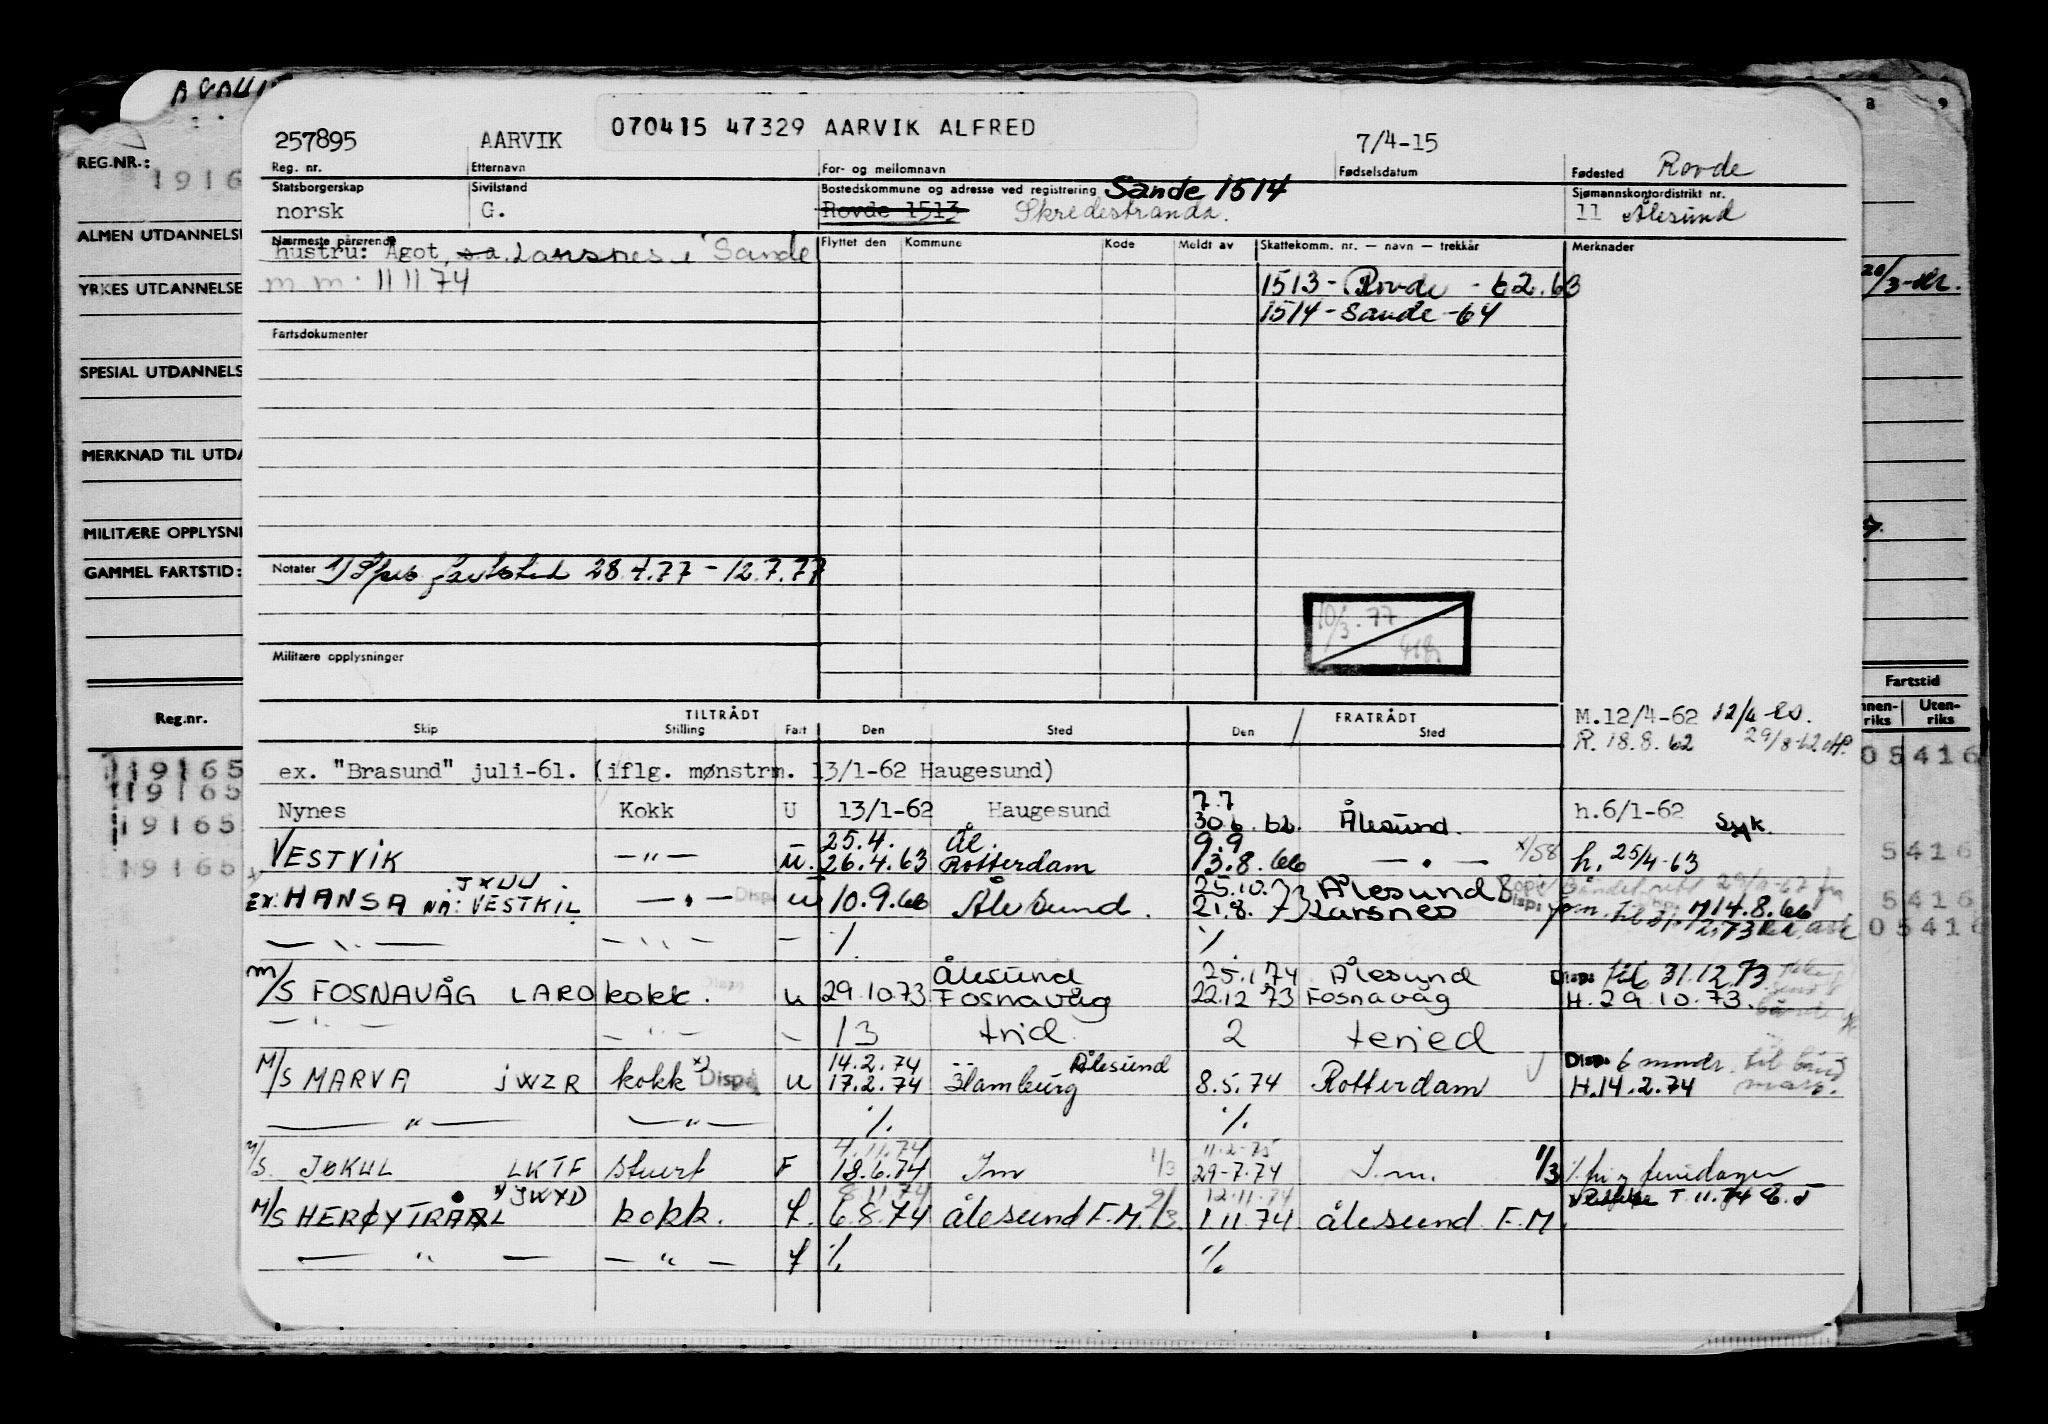 070415 47329 AARVIK ALFRED
257895 AARVIK 7/4-15 Rovde
Reg. nr. Etternavn For- og mellomnavn Fødselsdatum Fødested
Statsborgerskap Sivilstand Bostedskommune og adresse ved registrering Sande 1514 Sjømannskontordistrikt nr.
norsk G. Rovde 1513 Skredestranda. 11 Ålesund
Nærmeste pårørende Flyttet den Kommune Kode Meldt av Skattekomm. nr. — navn — trekkår Merknader
hustru: Agot, s.a. Larsnes i Sande
m m . 11 11 74
1513 - Rovde - t2.63
1514 - Sande - 64
Fartsdokumenter
Notater 1) Spes fartstid 28.4.77 - 12.7.77
10/3.77
Militære opplysninger
TILTRÅDT FRATRÅDT
Skip Stilling Fart Den Sted Den Sted
M.12/4-62 12/4-
R. 18.8.62 29/8-62
ex. "Brasund" juli-61. (iflg. mønstrm. 13/1-62 Haugesund)
Nynes Kokk U 13/1-62 Haugesund 7.7 30.6.62. Ålesund. h.6/1-62 Syk.
25.4. Ål. 9.9
VESTVIK — " — u. 26.4.63 Rotterdam 13.8.66 — " — x/58 h. 25/4-63
JXUU 25.10.73 Ålesund
EX: HANSA NA: VESTKIL — " — Disp u 10.9.66 Ålesund. 21.8.73 Larsnes Disp: 14.8.66
— " — — " — — % %
Ålesund 25.1.74 Ålesund Disp: til 31.12.73
M/S FOSNAVÅG LARO kokk. u 29.10.73 Fosnavåg 22.12 73 Fosnavåg H. 29.10.73.
— " — — " — — 13 trid. 2 teried
14.2.74 Ålesund Disp. 6 mndr. til
M/S MARVA JWZR kokk x) Disp. u 17.2.74 Hamburg 8.5.74 Rotterdam H.14.2.74
— " — — " — % %
4.11.74 11.2-75
M/S. JØKUL LKTF Stuert F 18.6.74 I m 1/3 29-7.74 I.m. 1/3 % fri og feriedager
JWXD 8.11.74 12.11.74 T. 11.74
M/S HERØYTRÅL kokk. f. 6.8.74 ålesund F.M. 2/3. 1.11.74 ålesund F.M.
— " — — " — f % %
REG.NR.:
1916
ALMEN UTDANNELSE
YRKES UTDANNELSE
SPESIAL UTDANNELS
MERKNAD TIL UTDA
MILITÆRE OPPLYSNI
GAMMEL FARTSTID:
Reg.nr.
119165
119165
119165
19165
8 9
Fartstid
nnen-riks Uten-riks
05416
5416
5416
05416